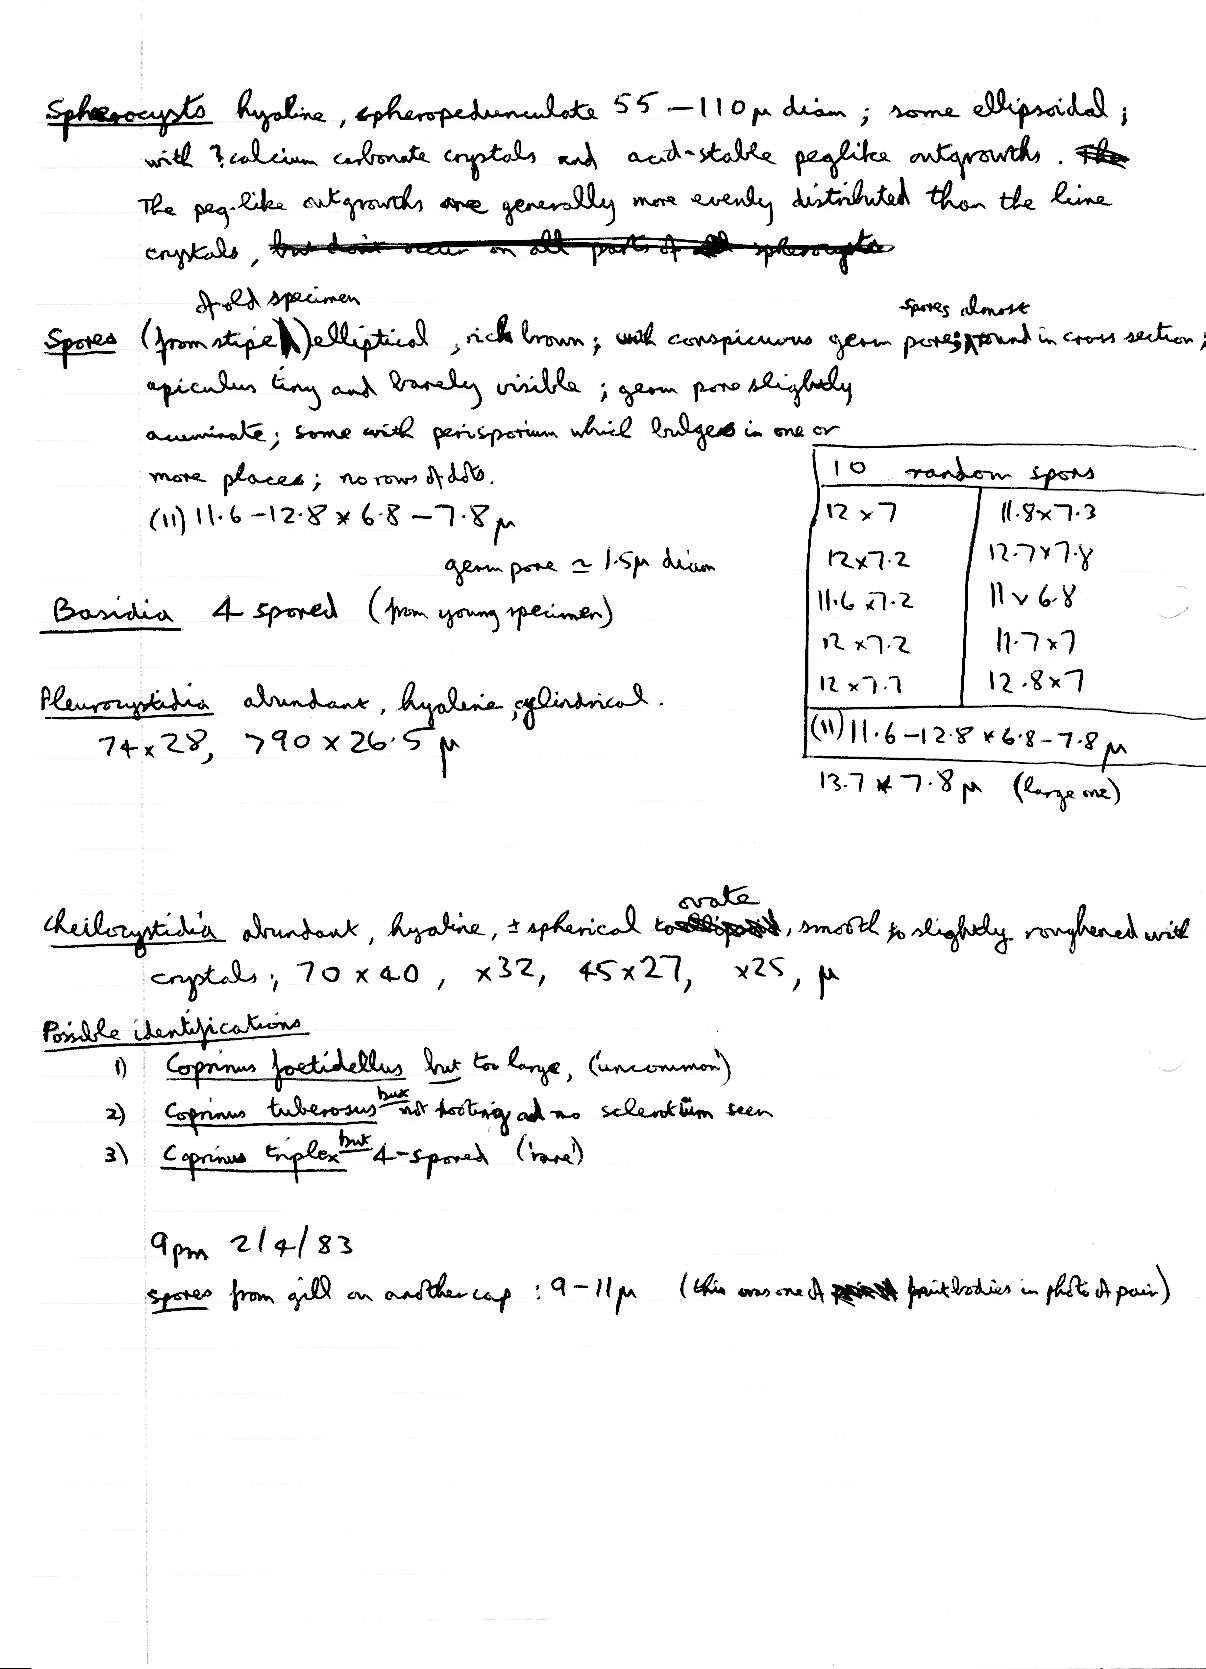 Spherocysts hyaline, spheropedunculate 55 – 110 μ diam; some ellipsoidal;
with ? calcium carbonate crystals and acid-stable peglike outgrowths. The
The peg-like outgrowths are generally more evenly distributed than the lime
crystals, but don't occur on all parts of all spherocysts
of old specimen
spores almost
Spores (from stipe) elliptical, rich brown; with conspicuous germ pore; round in cross section;
apiculus tiny and barely visible; germ pore slightly
acuminate; some with perisporium which bulges in one or
more places; no rows of dots.
(11) 11.6 – 12.8 × 6.8 – 7.8 μ
germ pore ≃ 1.5μ diam
Basidia 4 spored (from young specimen)
Pleurocystidia abundant, hyaline, cylindrical.
74 × 28, >90 × 26.5 μ
10 random spores
12 × 7 11.8 × 7.3
12 × 7.2 12.7 × 7.8
11.6 × 7.2 11 × 6.8
12 × 7.2 11.7 × 7
12 × 7.7 12.8 × 7
(11) 11.6 – 12.8 × 6.8 – 7.8 μ
13.7 × 7.8 μ (large one)
ovate
Cheilocystidia abundant, hyaline, ± spherical to , smooth to slightly roughened with
crystals; 70 × 40, ×32, 45 × 27, ×25, μ
Possible identifications
1) Coprinus foetidellus but too large, ('uncommon')
2) Coprinus tuberosus but not rooting ad no sclerotium seen
3) Coprinus triplex but 4-spored ('rare')
9pm 2/4/83
spores from gill on another cap : 9 – 11 μ (this was one of fruitbodies in photo of pair)